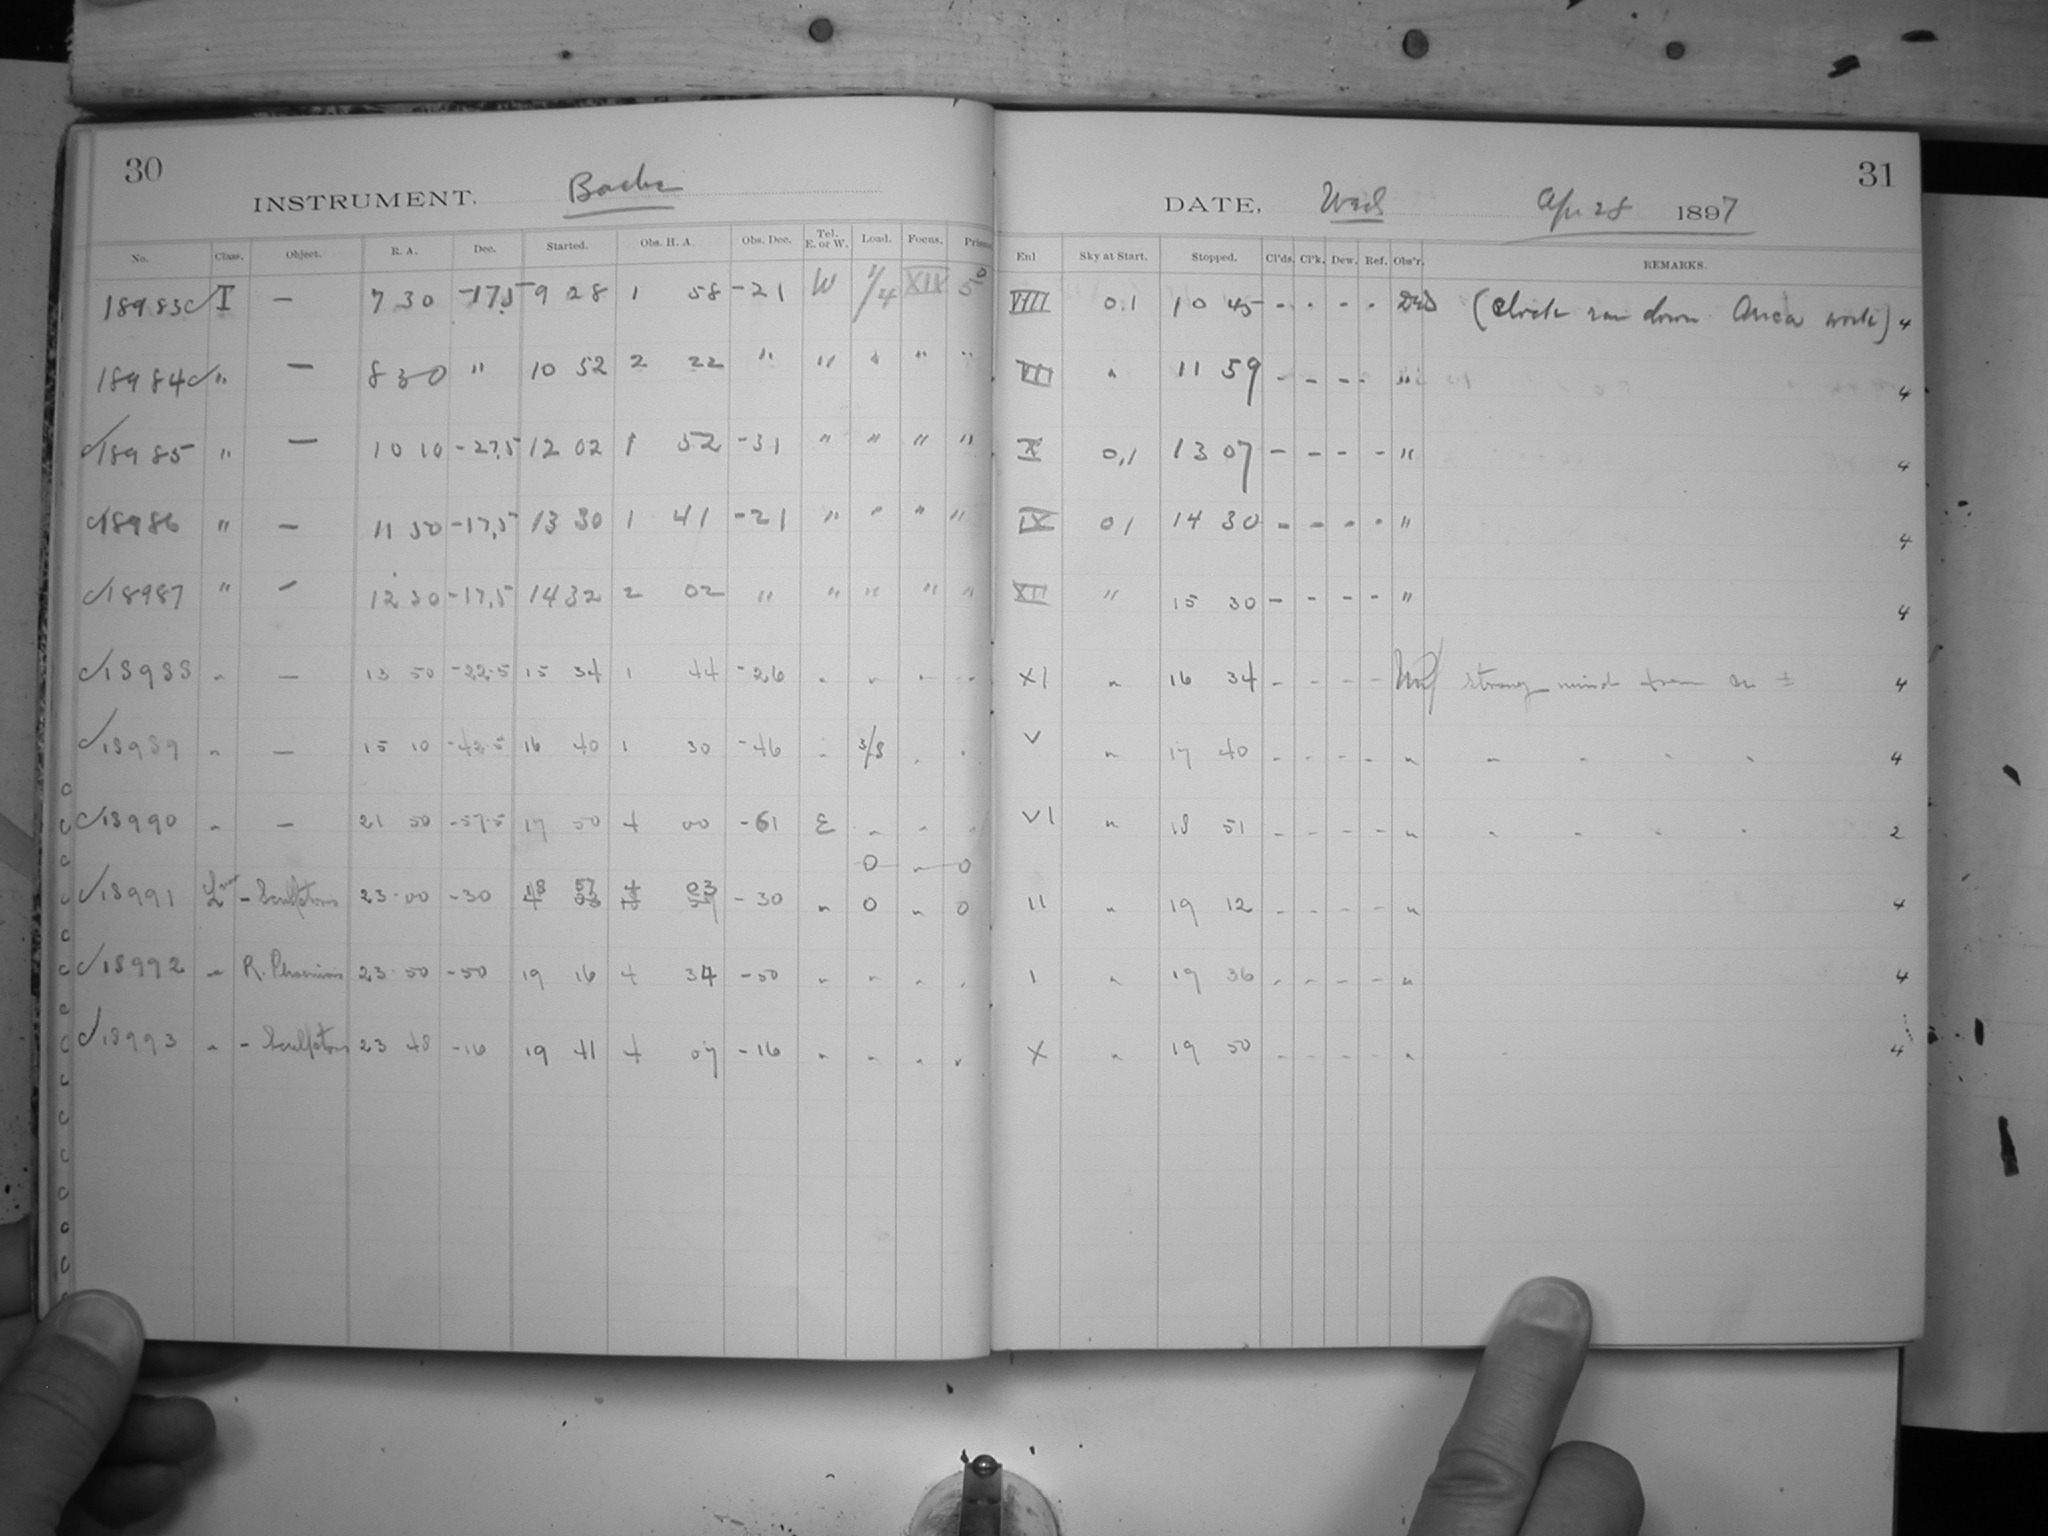 30
INSTRUMENT. Bache
No. Class. Object. R. A. Dec. Started. Obs. H. A. Obs. Dec. Tel. E. or W. Load. Focus. Prisms
18983 I — 7 30 -17.5 9 28 1 58 -21 W 1/4 XIX 5 0
18984 " — 8 30 " 10 52 2 22 " " " " "
18985 " — 10 10 -27.5 12 02 1 52 -31 " " " "
18986 " — 11 50 -17.5 13 30 1 41 -21 " " " "
18987 " — 12 30 -17.5 14 32 2 02 " " " " "
18988 " — 13 50 -22.5 15 34 1 44 -26 " " " "
18989 " — 15 10 -42.5 16 40 1 30 -46 " 3/8 " "
18990 " — 21 50 -57.5 17 50 4 00 -61 E " " "
0 " 0
18991 - Sculptoris 23 00 -30 18 57 4 03 -30 " 0 " 0
18992 " R. Phoenicis 23 50 -50 19 16 4 34 -50 " " " "
18993 " - Sculptoris 23 48 -16 19 41 4 07 -16 " " " "
31
DATE, Wed Apr 28 1897
Enl Sky at Start. Stopped. Cl'ds. Cl'k. Dew. Ref. Obs'r. REMARKS.
VIII 0.1 10 45 - - - - (Clock ran down. Area work) 4
VII " 11 59 - - - - " 4
X 0,1 13 07 - - - - " 4
IX 01 14 30 - - - - " 4
XII " 15 30 - - - - " 4
XI " 16 34 - - - - strong wind from 4
V " 17 40 - - - - " " " " " 4
VI " 18 51 - - - - " " " " " 2
II " 19 12 - - - - " 4
I " 19 36 - - - - " 4
X " 19 50 - - - - " 4